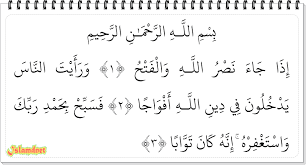 بِسْمِ اللَّـهِ الرَّحْمَـٰنِ الرَّحِيمِ
إِذَا جَاءَ نَصْرُ اللَّـهِ وَالْفَتْحُ ﴿١﴾ وَرَأَيْتَ النَّاسَ
يَدْخُلُونَ فِي دِينِ اللَّـهِ أَفْوَاجًا ﴿٢﴾ فَسَبِّحْ بِحَمْدِ رَبِّكَ
وَاسْتَغْفِرْهُ ۚ إِنَّهُ كَانَ تَوَّابًا ﴿٣﴾